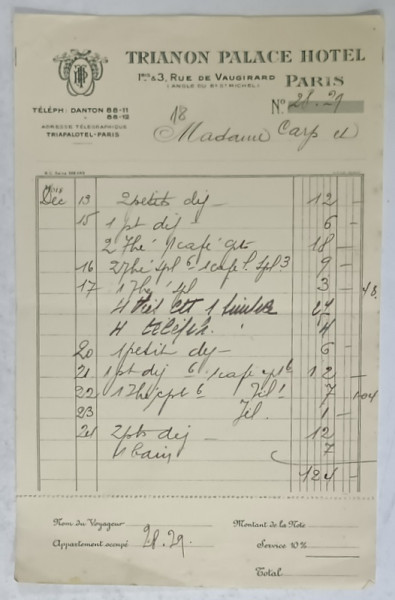 TRIANON PALACE HOTEL
1bis & 3, RUE DE VAUGIRARD
(ANGLE DU Bd St MICHEL)
PARIS
TÉLÉPH: DANTON 88-11
88-12
ADRESSE TÉLÉGRAPHIQUE
TRIAPALOTEL-PARIS
No 28.29
18
Madame Carp et
Dec 13 2 petits dej — 12 —
15 1 pt dej — 6 —
2 Thé 1 café 18 —
16 2 Thé 6 1 café 3 9 —
17 1 Thé 3 — 48.
4 1 24
4 téléph. 4
20 1 petit dej — 6 —
21 1 pt dej 6 1 café 6 12 —
22 1 Thé cplt 6 Tél 1 7
23 Tél. 1 —
24 2 pts dej — 12
1 bain 7
124 —
Nom du Voyageur
Montant de la Note
Appartement occupé 28.29.
Service 10%
Total